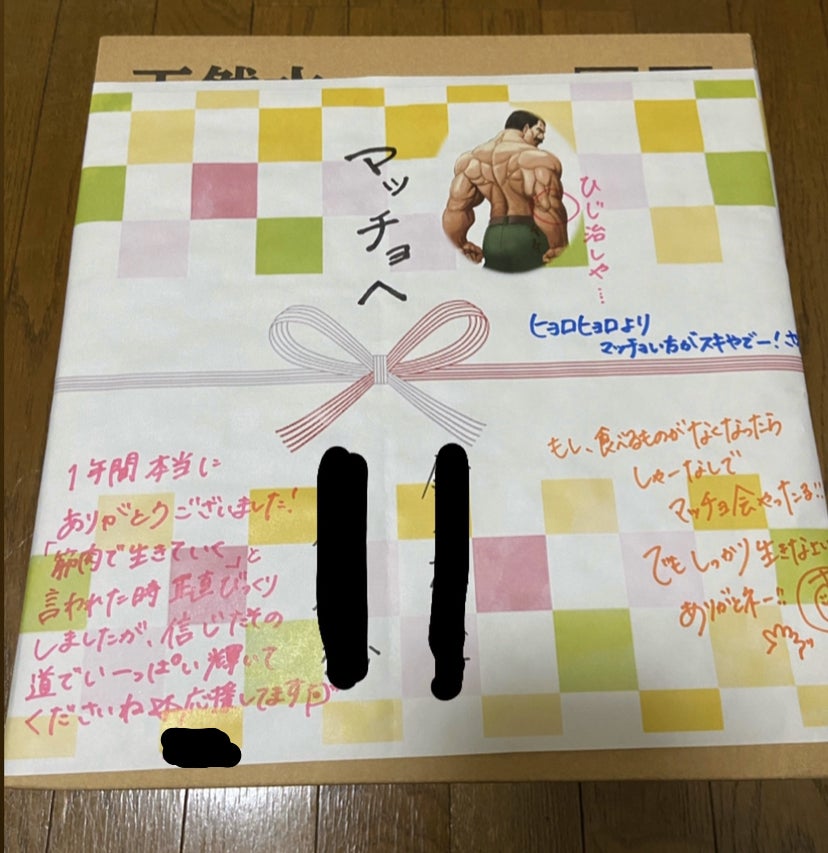 天然水
マッチョへ
ひじ治しや…
ヒョロヒョロより
マッチョい方がスキやでー!
もし、食べるものがなくなったら
しゃーなしで
マッチョ会やったる!!
でもしっかり生きなよ
ありがとネー!!
1年間本当に
ありがとうございました!
「筋肉で生きていく」と
言われた時正直びっくり
しましたが、信じたその
道でいーっぱい輝いて
くださいね 応援してます